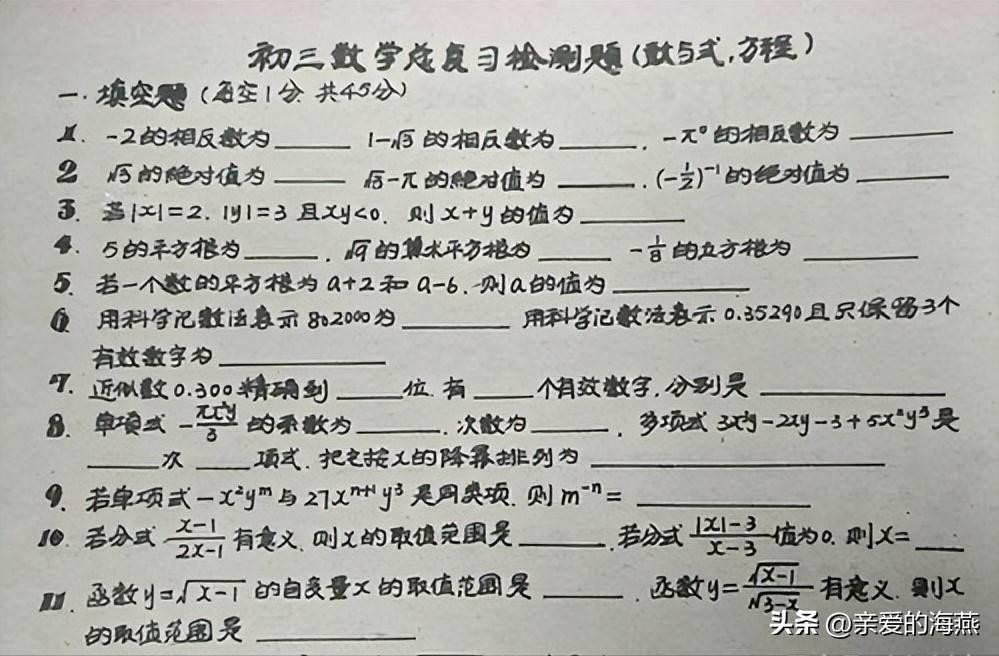 初三数学总复习检测题(数与式,方程)
一.填空题(每空1分.共45分)
1. -2的相反数为____ 1-√3的相反数为____. -π⁰的相反数为____
2 √3的绝对值为____ √3-π的绝对值为____.(-1/2)⁻¹的绝对值为____
3. 若|x|=2. |y|=3且xy<0. 则x+y的值为____
4. 5的平方根为____. √9的算术平方根为____ -1/8的立方根为____
5. 若一个数的平方根为a+2和a-6.则a的值为____
6 用科学记数法表示802000为____ 用科学记数法表示0.35290且只保留3个
有效数字为____
7. 近似数0.300精确到____位.有____个有效数字,分别是____
8. 单项式 -πx²y/3 的系数为____.次数为____. 多项式3x³y-2xy-3+5x²y³是
____次____项式.把它按x的降幂排列为____
9. 若单项式-x²yᵐ与27xⁿ⁺¹y³是同类项.则m⁻ⁿ=____
10. 若分式 x-1/2x-1 有意义.则x的取值范围是____.若分式 |x|-3/x-3 值为0.则x=____
11. 函数y=√x-1的自变量x的取值范围是____. 函数y=√x-1/√3-x有意义.则x
的取值范围是____
头条 @亲爱的海燕